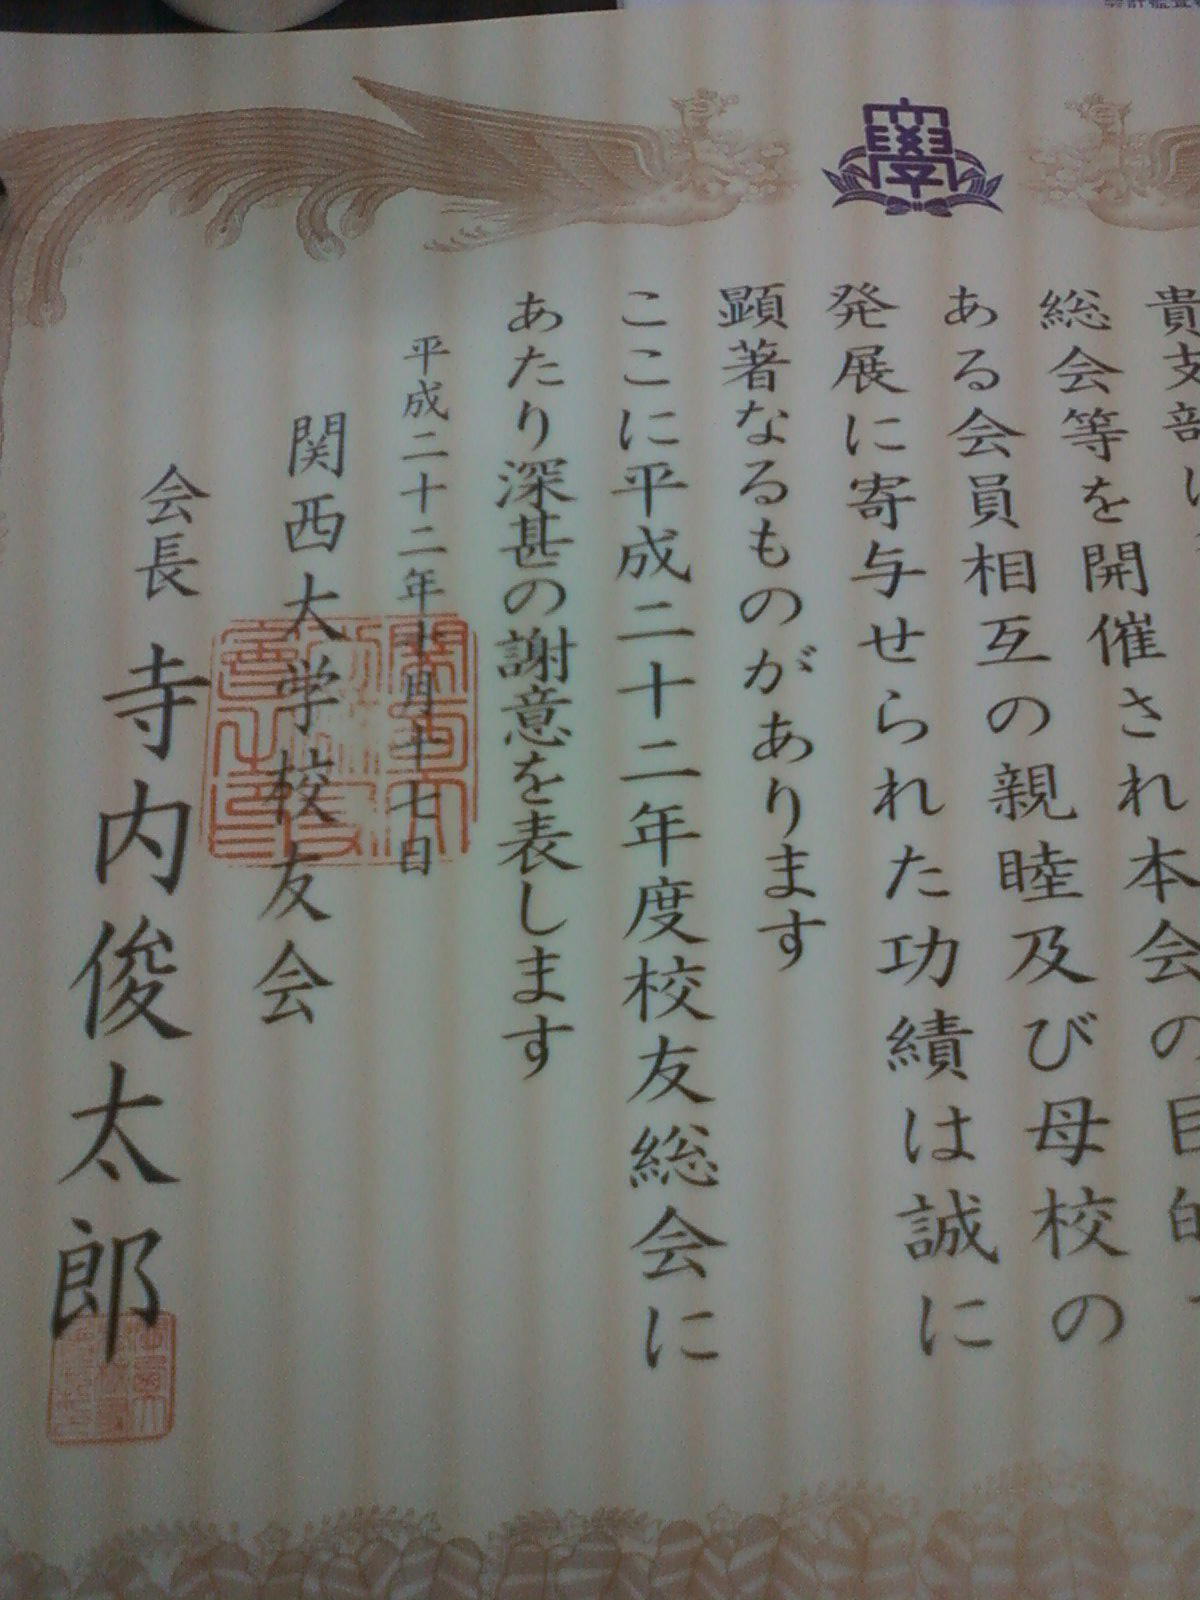 貴支部は
総会等を開催され本会の目的で
ある会員相互の親睦及び母校の
発展に寄与せられた功績は誠に
顕著なるものがあります
ここに平成二十二年度校友総会に
あたり深甚の謝意を表します
平成二十二年十月十七日
関西大学校友会
会長 寺内俊太郎